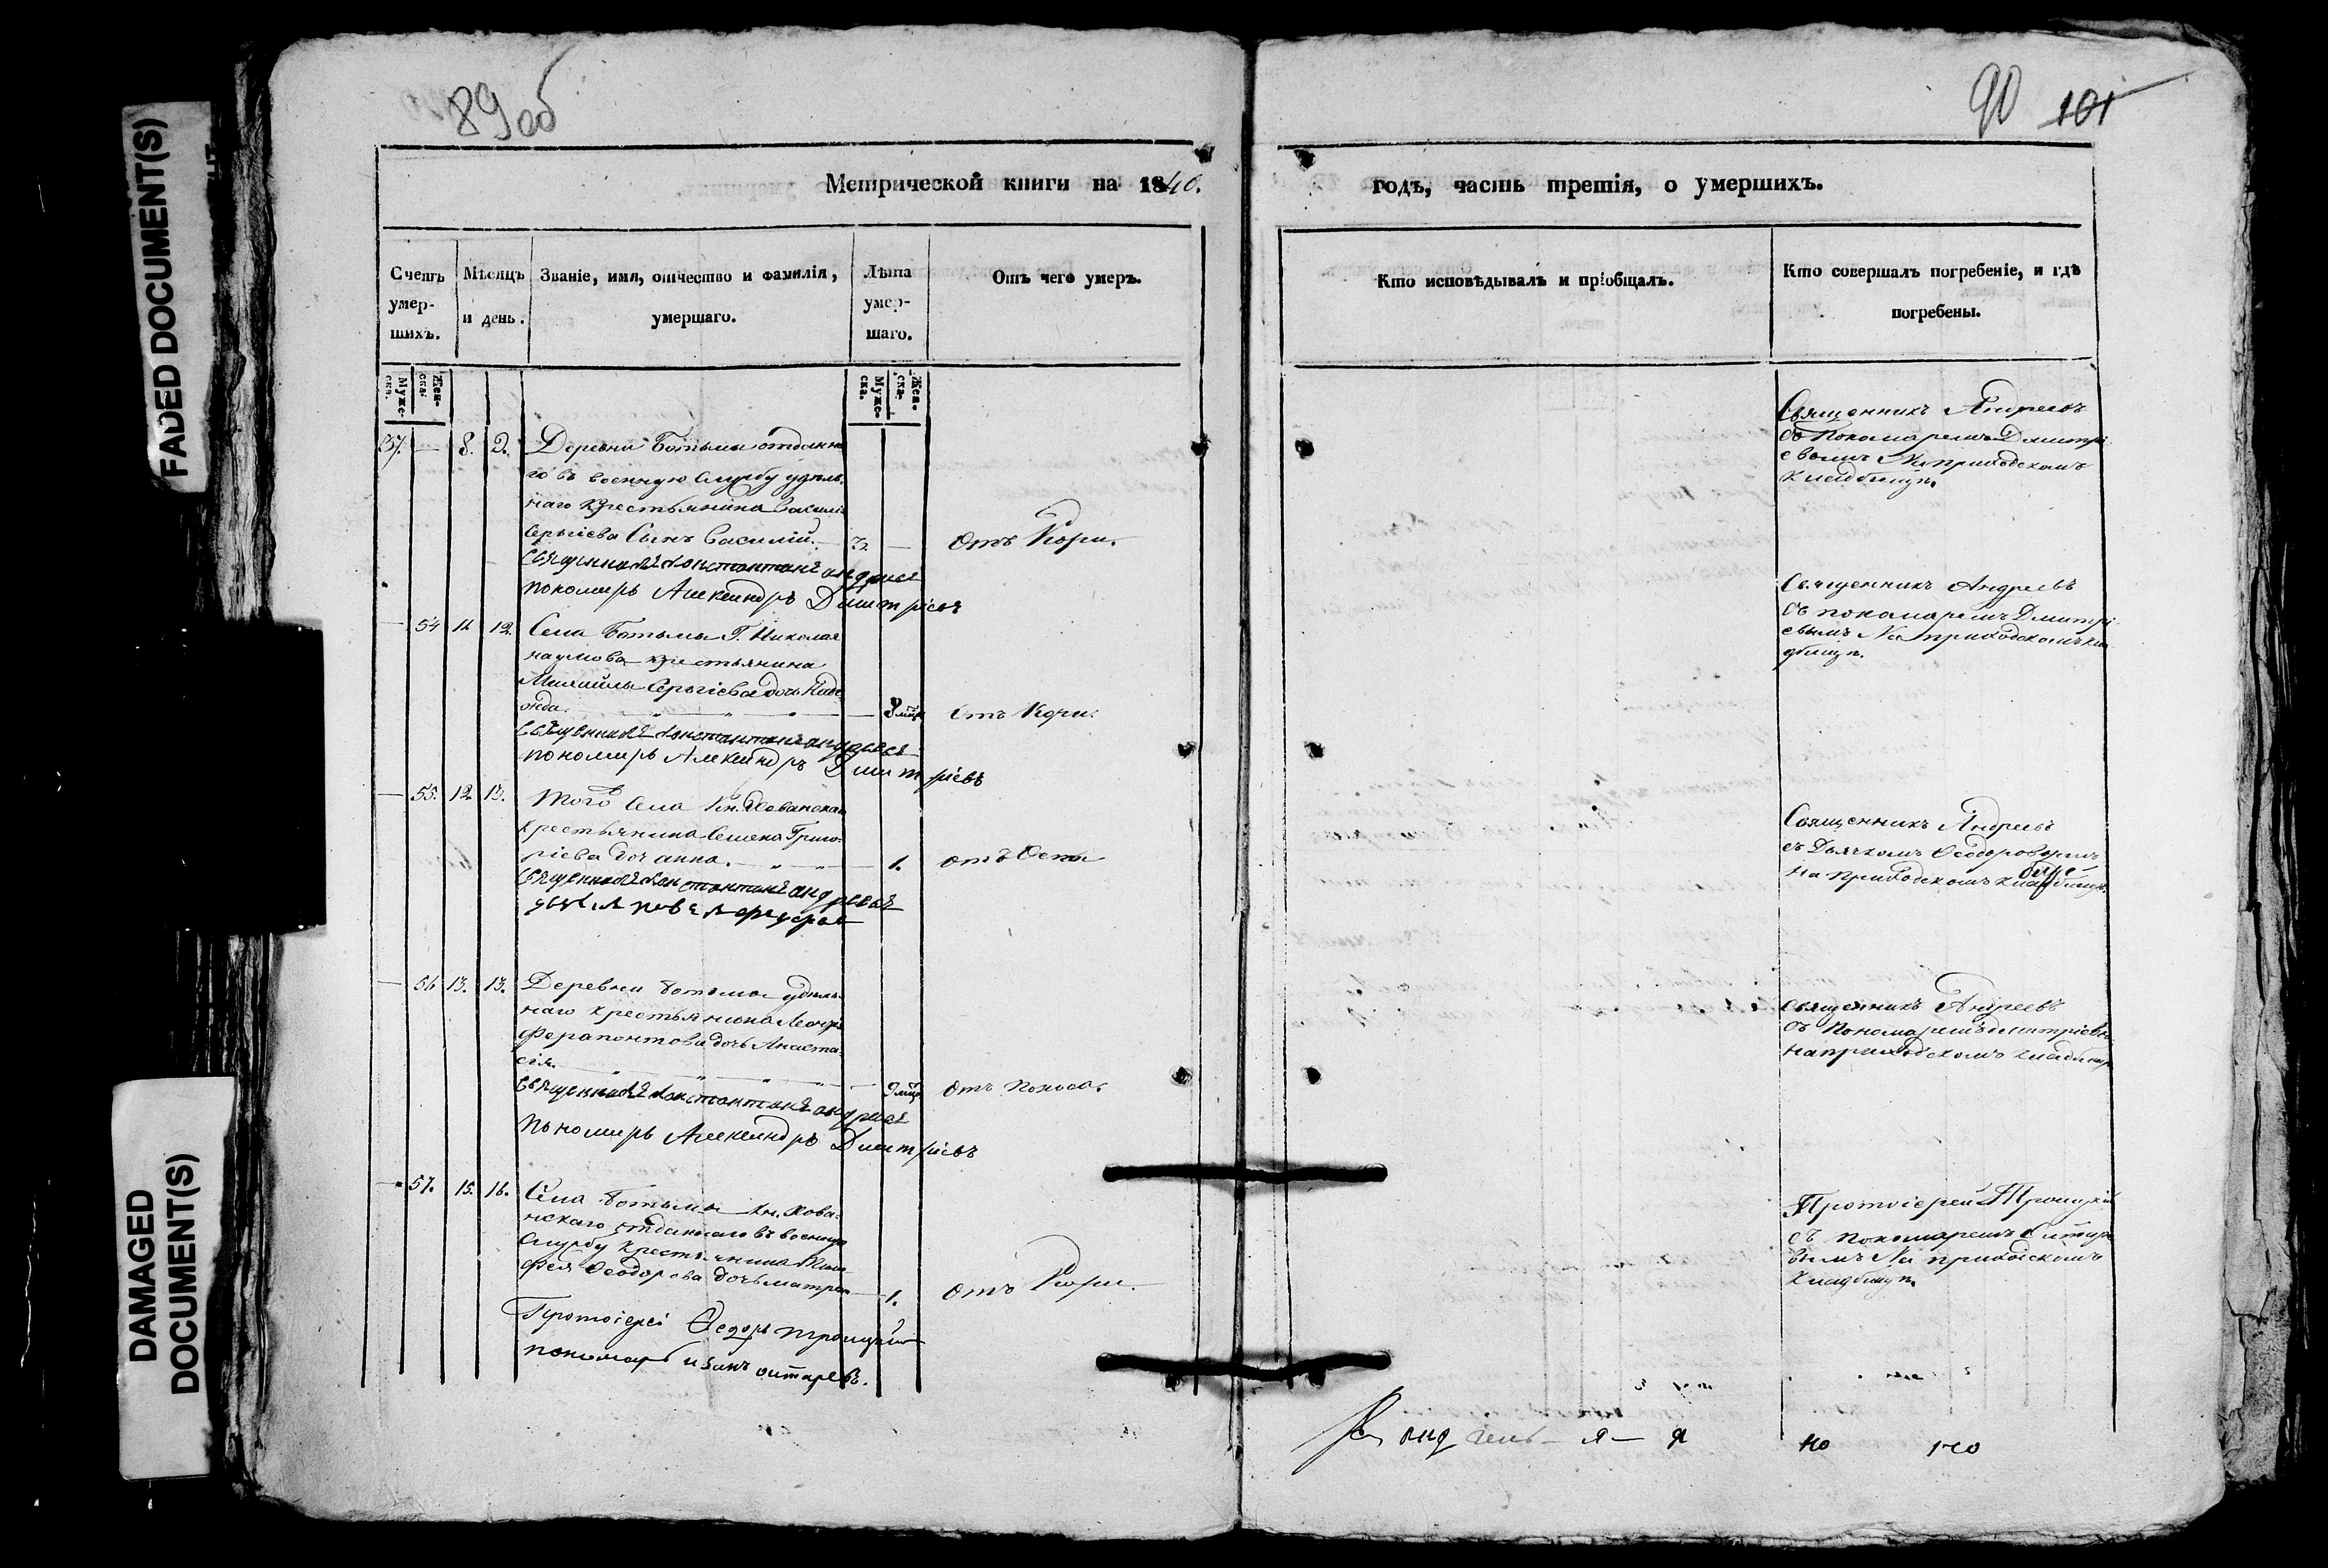 FADED DOCUMENT(S)
DAMAGED
DOCUMENT(S)
89об
90 101
Метрической книги на 1840.
годъ, часть третія, о умершихъ.
Счетъ умер-шихъ.
Мѣсяцъ и день.
Званіе, имя, отчество и фамилія, умершаго.
Лѣта умер-шаго.
Отъ чего умеръ.
Кто исповѣдывалъ и пріобщалъ.
Кто совершалъ погребеніе, и гдѣ погребены.
Муже-ска.
Жен-ска.
Муже-ска.
Жен-ска.
57. — 8. 2. Деревни Ботьмы отданна
го въ военную службу удѣль-
наго крестьянина Василія
Сергіева Сынъ Василій. 3. — отъ Кори.
Священникъ Константинъ андреевъ
пономарь Александръ Дмитріевъ
Священникъ Андреевъ
съ Пономаремъ Дмитрі
евымъ На приходскомъ
кладбищѣ.
— 54 11. 12. Села Ботьмы Г. Николая
наумова крестьянина
Михайлы Сергіева дочь Наде
жда. — 8 мѣс отъ Кори.
Священникъ Константинъ андреевъ
пономарь Александръ Дмитріевъ
Священникъ Андреевъ
съ пономаремъ Дмитрі
евымъ На приходскомъ кла
дбищѣ.
— 55. 12. 13. Того Села Кн. Хованскаго
крестьянина Семена Григо-
ріева доч анна. — 1. отъ Оспы
Священникъ Константинъ андреевъ
Священникъ Андреевъ
съ Дьячкомъ Ѳеодоровымъ
на приходскомъ кладбищѣ.
— 56 13. 13. Деревни Ботьмы удѣль-
наго крестьянина
Ферапонтова дочь Анаста-
сія. — 9 мѣс отъ Поноса.
Священникъ Константинъ андреевъ
пономарь Александръ Дмитріевъ
Священникъ Андреевъ
съ Пономаремъ дмитріевы
на приходскомъ кладбищѣ
— 57. 15. 16. Села Ботьмы Кн. Хова-
нскаго отданнаго въ военную
службу крестьянина Тимо
фея Ѳеодорова дочь матрен 1. отъ Кори.
Протоіерей Ѳедоръ троицкій
пономарь иванъ ситаревъ.
Протоіерей Троицкій
съ пономаремъ Ситаре
вымъ На приходскомъ
кладбищѣ.